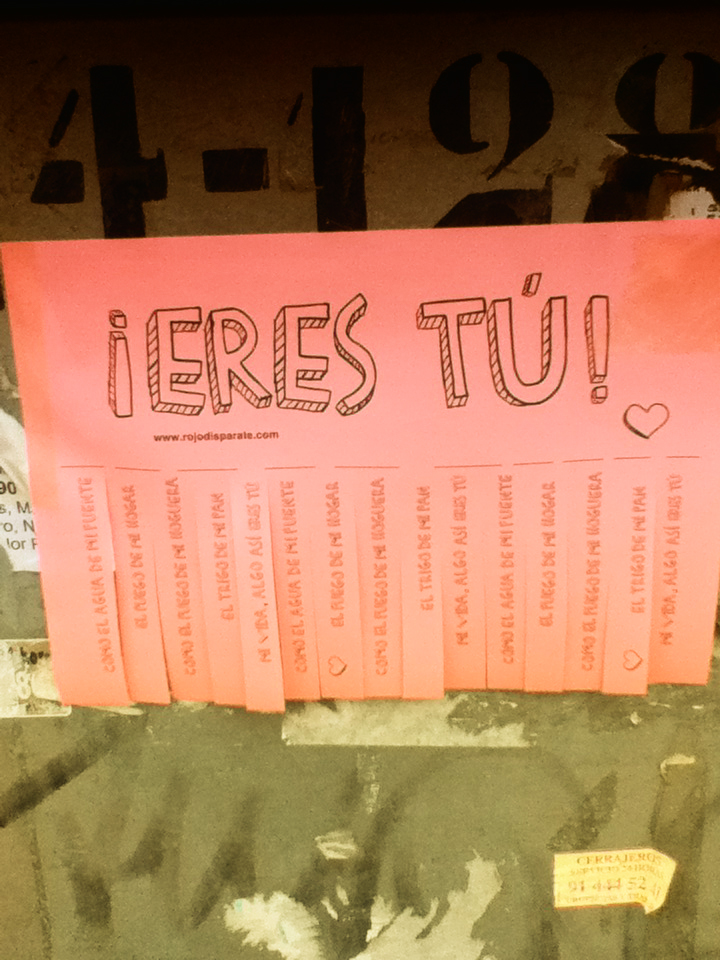 4-128
¡ERES TÚ!
www.rojodisparate.com
COMO EL AGUA DE MI FUENTE
EL FUEGO DE MI HOGAR
COMO EL FUEGO DE MI HOGUERA
EL TRIGO DE MI PAN
MI VIDA, ALGO ASÍ ERES TÚ
COMO EL AGUA DE MI FUENTE
EL FUEGO DE MI HOGAR
COMO EL FUEGO DE MI HOGUERA
EL TRIGO DE MI PAN
MI VIDA, ALGO ASÍ ERES TÚ
COMO EL AGUA DE MI FUENTE
EL FUEGO DE MI HOGAR
COMO EL FUEGO DE MI HOGUERA
EL TRIGO DE MI PAN
MI VIDA, ALGO ASÍ ERES TÚ
90
CERRAJEROS
SERVICIO 24 HORAS